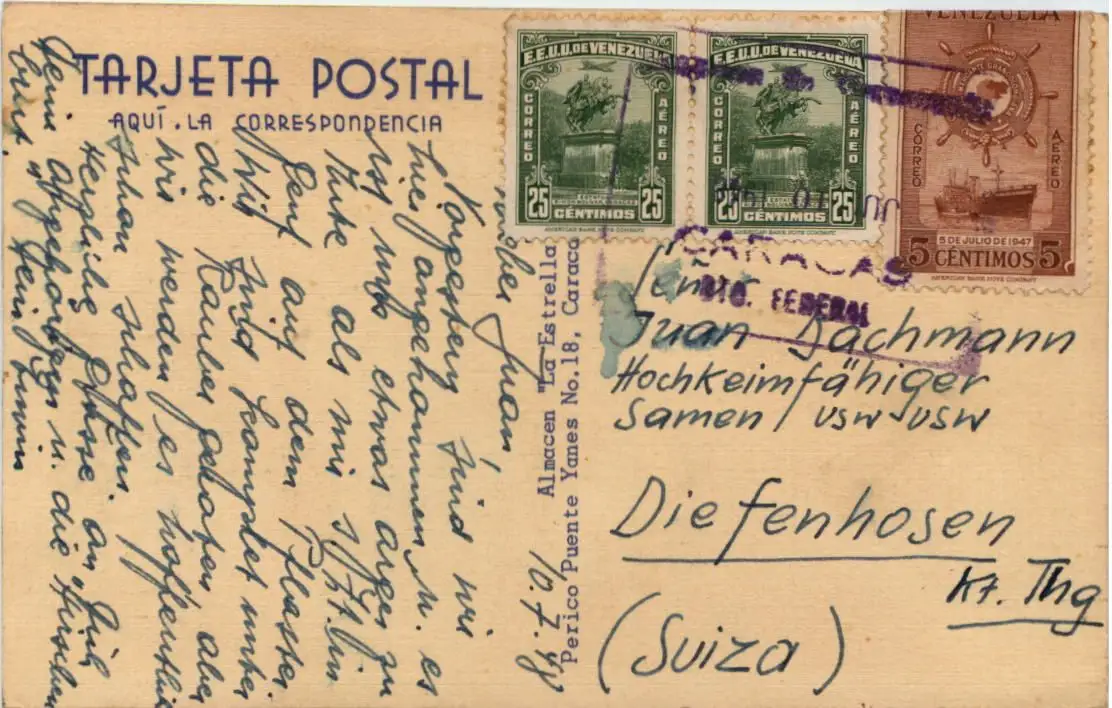 TARJETA POSTAL
AQUÍ . LA CORRESPONDENCIA
E.E.U.U. DE VENEZUELA
CORREO
AÉREO
25 CÉNTIMOS 25
AMERICAN BANK NOTE COMPANY
E.E.U.U. DE VENEZUELA
CORREO
AÉREO
25 CÉNTIMOS 25
AMERICAN BANK NOTE COMPANY
VENEZUELA
CORREO
AÉREO
5 DE JULIO DE 1947
5 CÉNTIMOS 5
AMERICAN BANK NOTE COMPANY
CARACAS
DTO. FEDERAL
Señor
Juan Bachmann
Hochkeimfähiger
Samen / usw usw
Diefenhosen
Kt. Thg
(Suiza)
Almacen "La Estrella
Perico Puente Yanes No.18, Caraca
10.7.48
Lieber Juan,
Vorgestern sind wir
hier angekommen u. es
ist uns etwas arger zu
Mute als mir s/Zt. in
Genf auf dem Pflaster.
sind
die Räuber geraten aber
wir werden es hoffentlich
schaffen.
Herzliche Grüsse an Dich
Deine Angehörigen u. die